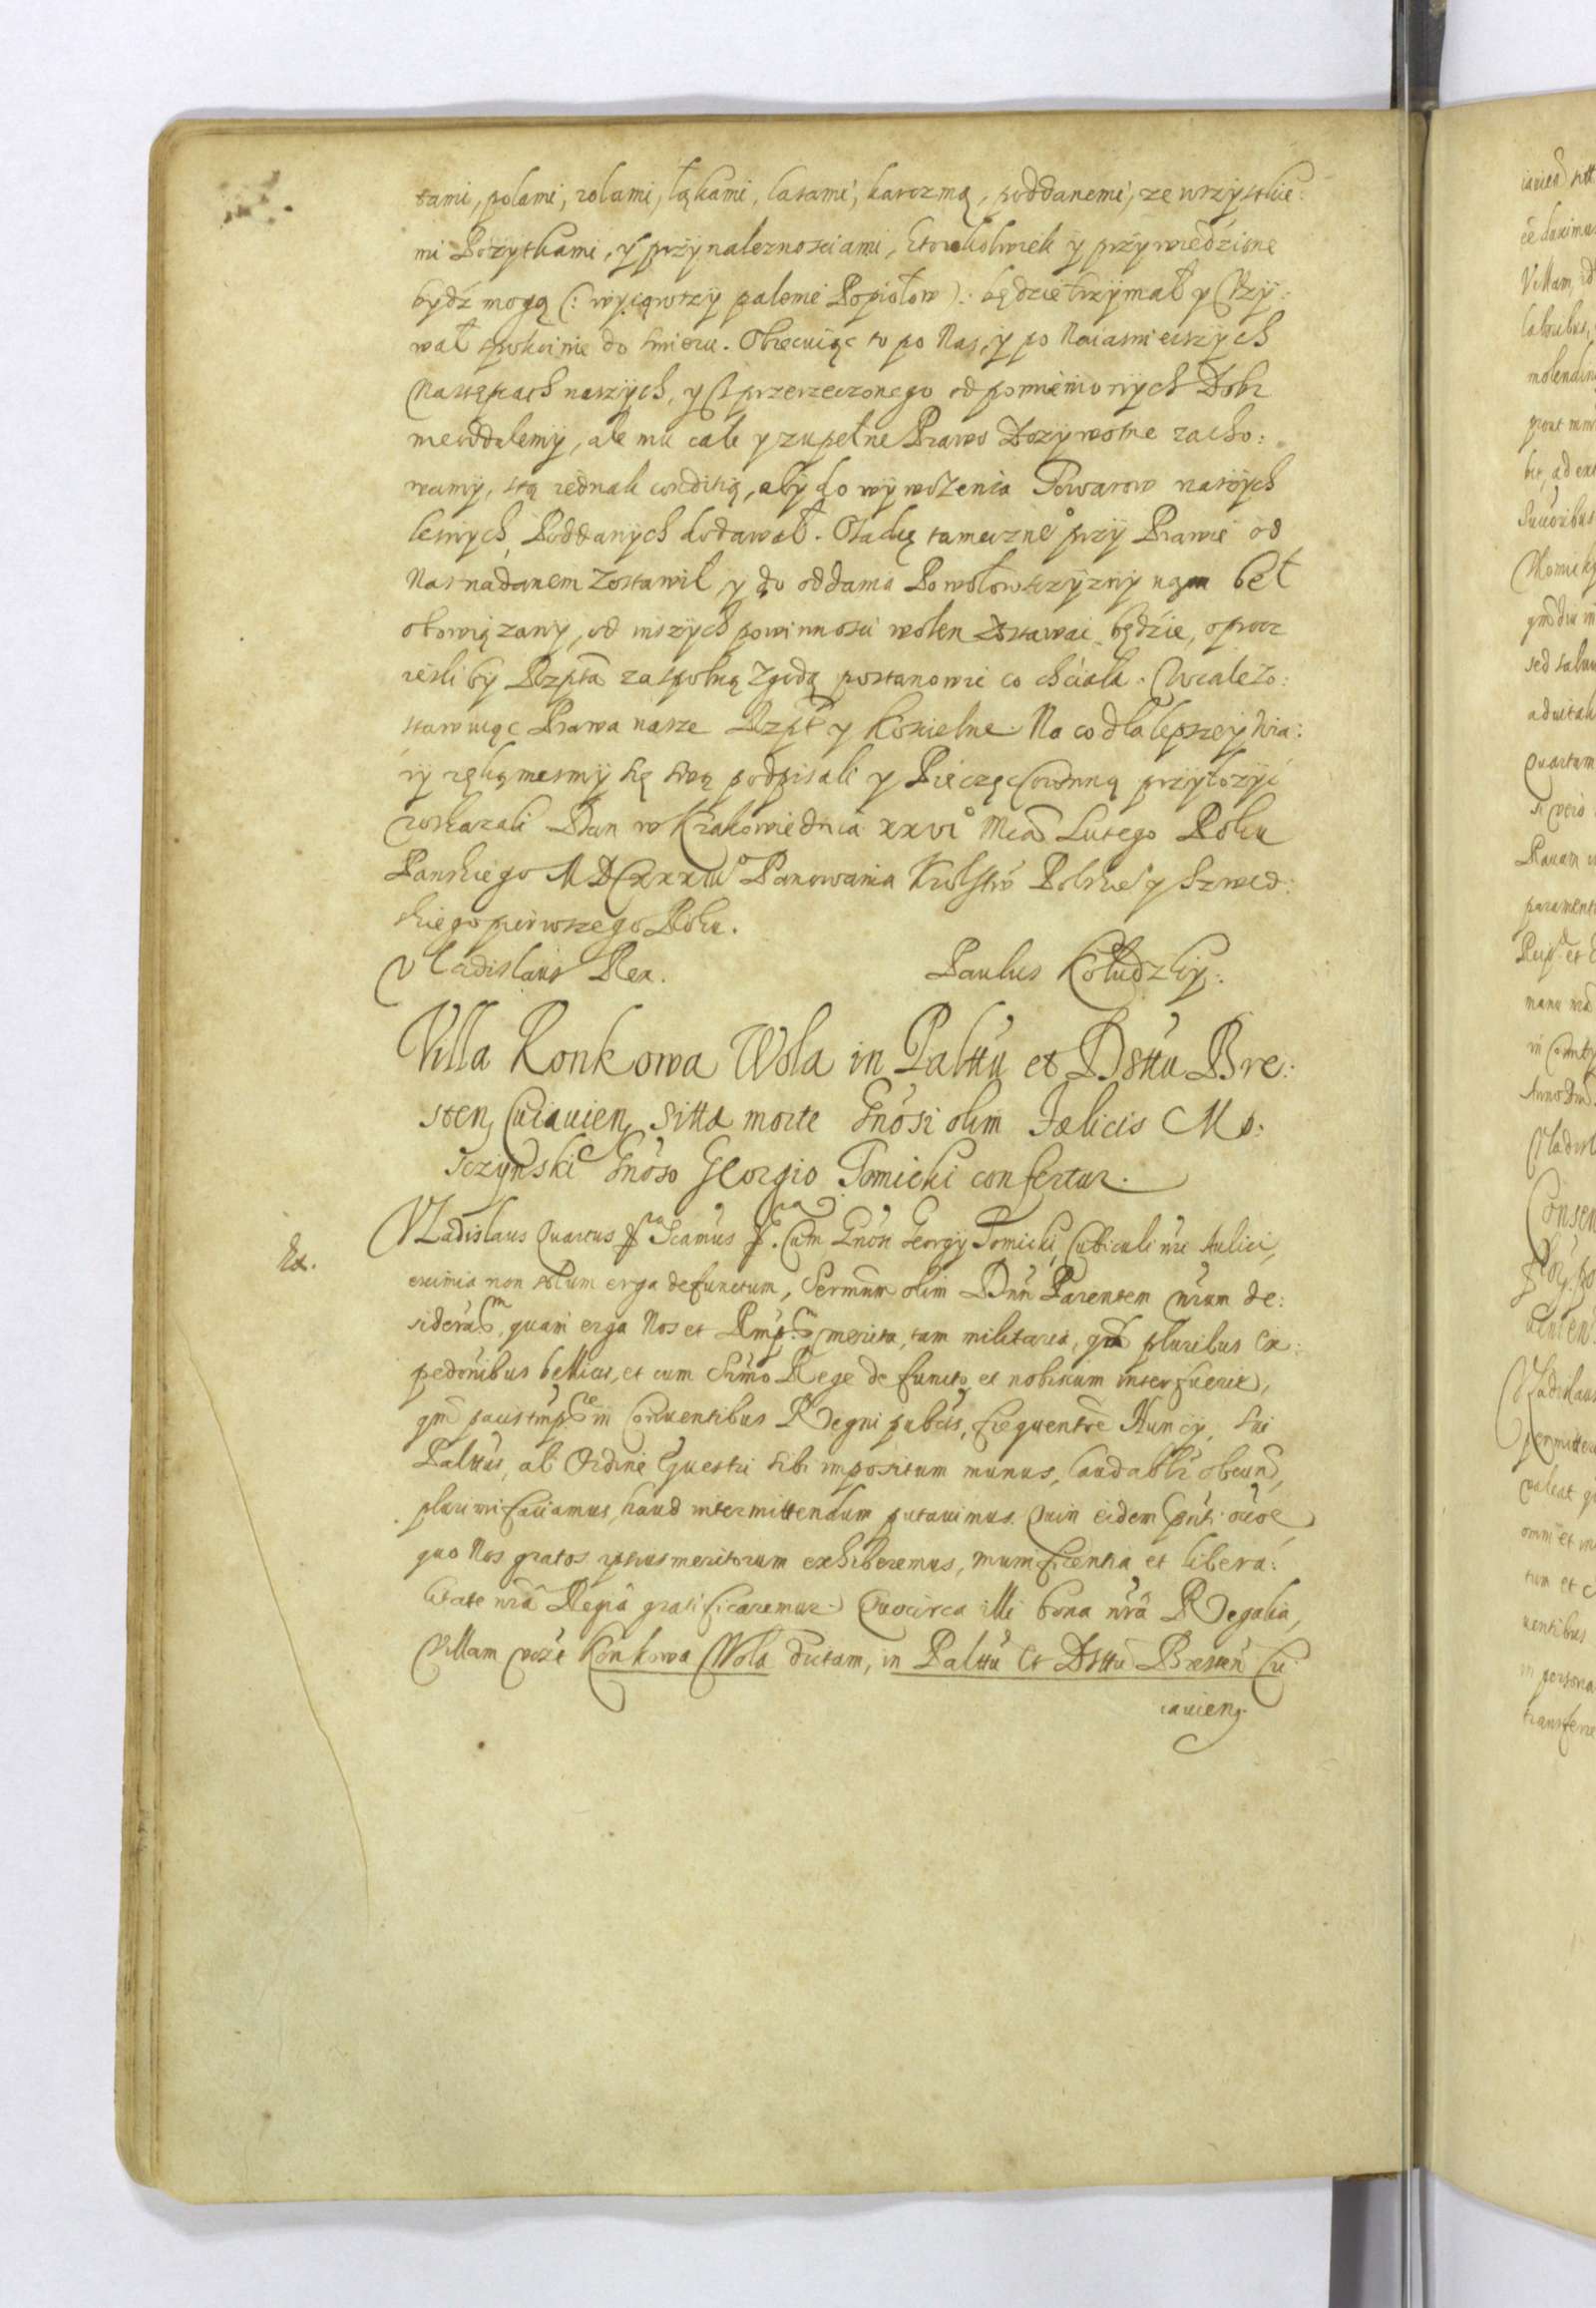 tami, polami, rolami, łąkami, lasami, karczmą, poddanemi, ze wszÿstkie:
mi Pożytkami, ÿ przÿnaleznosciami, ktorekolwiek ÿ przÿwiedzione
bÿdź mogą (: wÿiąwszÿ palenie Popiołow ): będzie trzÿmał ÿ Vżÿ:
wał spokoinie do smierci. Obiecuiąc to po Nas, ÿ po Naiasnieiszÿch
Nastęcach naszÿch, ÿ przerzeczonego od pomienionÿch Dobr
nieoddalemÿ, ale mu całe ÿ zupełne Prawo Dozÿwotne zacho:
wamÿ, stą iednak conditią, abÿ do wÿwożenia Towarow naszÿch
lesnÿch, Poddanÿch dodawał. Osadę tameczne° przÿ Prawie od
Nas nadanem zostawił ÿ do oddania Powołowszczÿznÿ nam beł
obowiązanÿ, od inszÿch powinnosci wolen zostawac będzie, oprocz
iesli bÿ Rzpta zaspolną zgodą postanowic co chciała. Wcale zo:
stawuiąc Prawa nasze Rzpt ÿ Koscielne. Na co dla lepszeÿ wia:
rÿ ręką mesmÿ się swą podpisali ÿ Pieczęc Coronną przÿłozÿc
roskazali Dan w Krakowie dnia xxvi° Mca Lutego Roku
Panskiego MDCxxxiii° Panowania Krolstw Polskie° ÿ Szwed:
skiego pierwszego Roku.
Vladislaus Rex. Paulus Kołudzkÿ:
Villa Konkowa Wola in Palttu et Dsttu Bre:
sten, Cuiauien, sitta morte Gnosi olim Fælicis Mo:
sczÿnski Gnoso Georgio Tomicki confertur.
Rx. Vladislaus Quartus &ra Scamus &. Cum Gnosi Georgÿ Tomicki, Cubiculi nri Aulici,
eximia non solum erga defunctum, Sermum olim Dnn Parentem nrum de:
sideram, quam erga Nos et Rmp. merita, tam militaria, qm pluribus Ex:
pedonibus bellicis, et cum Srmo Rege defuncto et nobiscum interfuerit,
qm pacis tmpre in Conuentibus Regni pubcis, frequentre Nuncÿ, sui
Palttus, ab Ordine Equestri sibi impositum munus, laudablr obeund,
plurimi faciamus, haud intermittendum putauimus. Quin eidem pnti occoe
quo Nos gratos ipsius meritorum exhiberemus, munificentia et libera:
litate nra Regia gratificaremur. Quocirca illi bona nra Regalia,
Villam voce Konkowa Wola dictam, in Palttu Et Dsttu Bresten Cu
iauien,